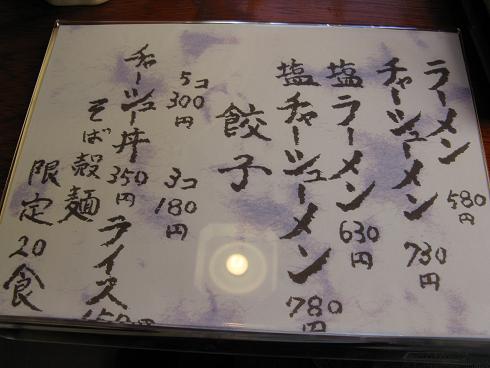 ラーメン 580円
チャーシューメン 730円
塩ラーメン 630円
塩チャーシューメン 780円
餃子
5コ 300円
3コ 180円
チャーシュー丼 350円
ライス 150円
そば殻麺
限定20食